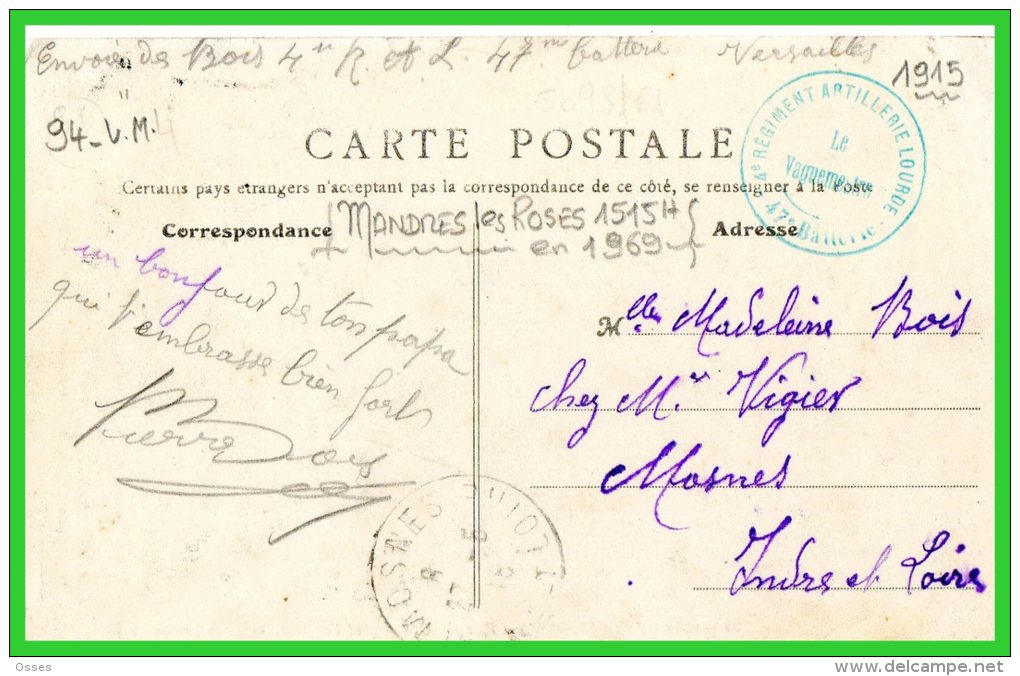 Envoi de Bois 4e R. A. L. 47me batterie Versailles
1915
94 - V.M.
CARTE POSTALE
Certains pays etrangers n'acceptant pas la correspondance de ce côté, se renseigner à la Poste
4e RÉGIMENT ARTILLERIE LOURDE
Le
Vaguemestre
47e Batterie
MANDRES les ROSES 1515H
en 1969
Correspondance
Adresse
un bonjour de ton papa
qui t'embrasse bien fort
Pierre Bois
Melle Madeleine Bois
chez Mr Vigier
Mosnes
Indre et Loire
MOSNES
Osses
www.delcampe.net